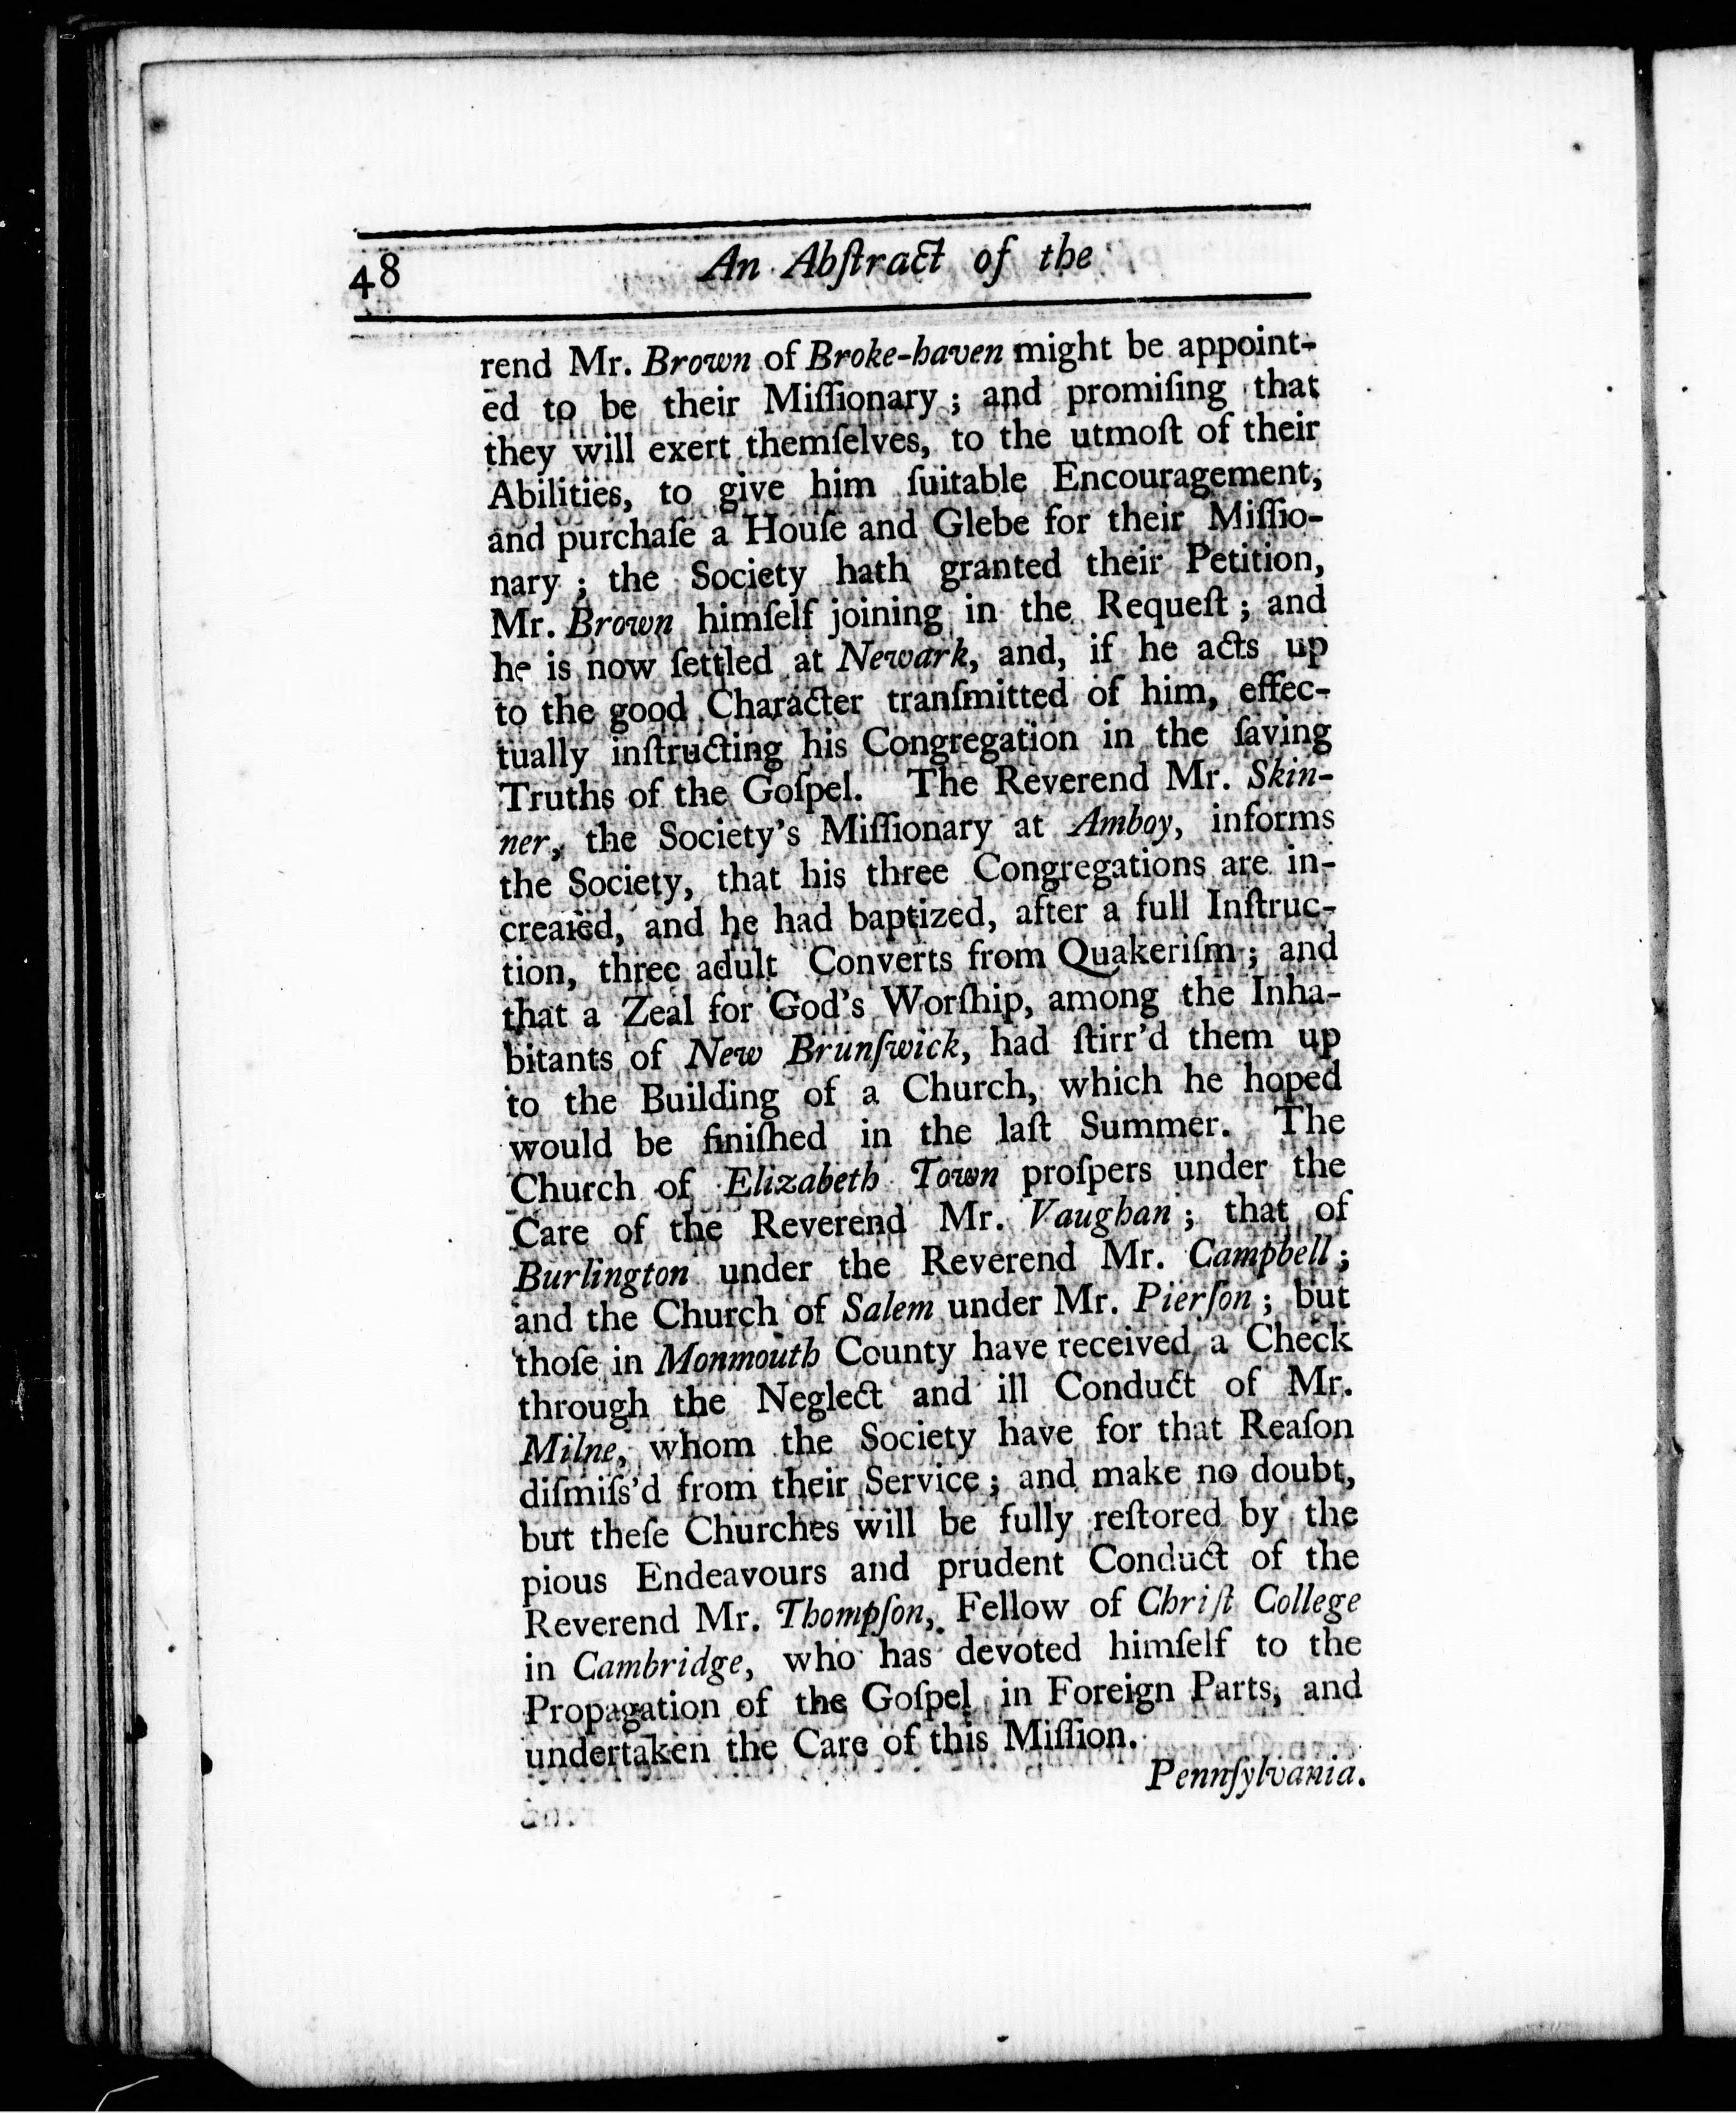 48 An Abſtract of the
rend Mr. Brown of Broke-haven might be appoint-
ed to be their Miſſionary; and promiſing that
they will exert themſelves, to the utmoſt of their
Abilities, to give him ſuitable Encouragement,
and purchaſe a Houſe and Glebe for their Miſſio-
nary; the Society hath granted their Petition,
Mr. Brown himſelf joining in the Requeſt; and
he is now ſettled at Newark, and, if he acts up
to the good Character tranſmitted of him, effec-
tually inſtructing his Congregation in the ſaving
Truths of the Goſpel. The Reverend Mr. Skin-
ner, the Society's Miſſionary at Amboy, informs
the Society, that his three Congregations are in-
creaſed, and he had baptized, after a full Inſtruc-
tion, three adult Converts from Quakeriſm; and
that a Zeal for God's Worſhip, among the Inha-
bitants of New Brunſwick, had ſtirr'd them up
to the Building of a Church, which he hoped
would be finiſhed in the laſt Summer. The
Church of Elizabeth Town proſpers under the
Care of the Reverend Mr. Vaughan; that of
Burlington under the Reverend Mr. Campbell;
and the Church of Salem under Mr. Pierſon; but
thoſe in Monmouth County have received a Check
through the Neglect and ill Conduct of Mr.
Milne, whom the Society have for that Reaſon
diſmiſs'd from their Service; and make no doubt,
but theſe Churches will be fully reſtored by the
pious Endeavours and prudent Conduct of the
Reverend Mr. Thompſon, Fellow of Chriſt College
in Cambridge, who has devoted himſelf to the
Propagation of the Goſpel in Foreign Parts, and
undertaken the Care of this Miſſion.
Pennſylvania.